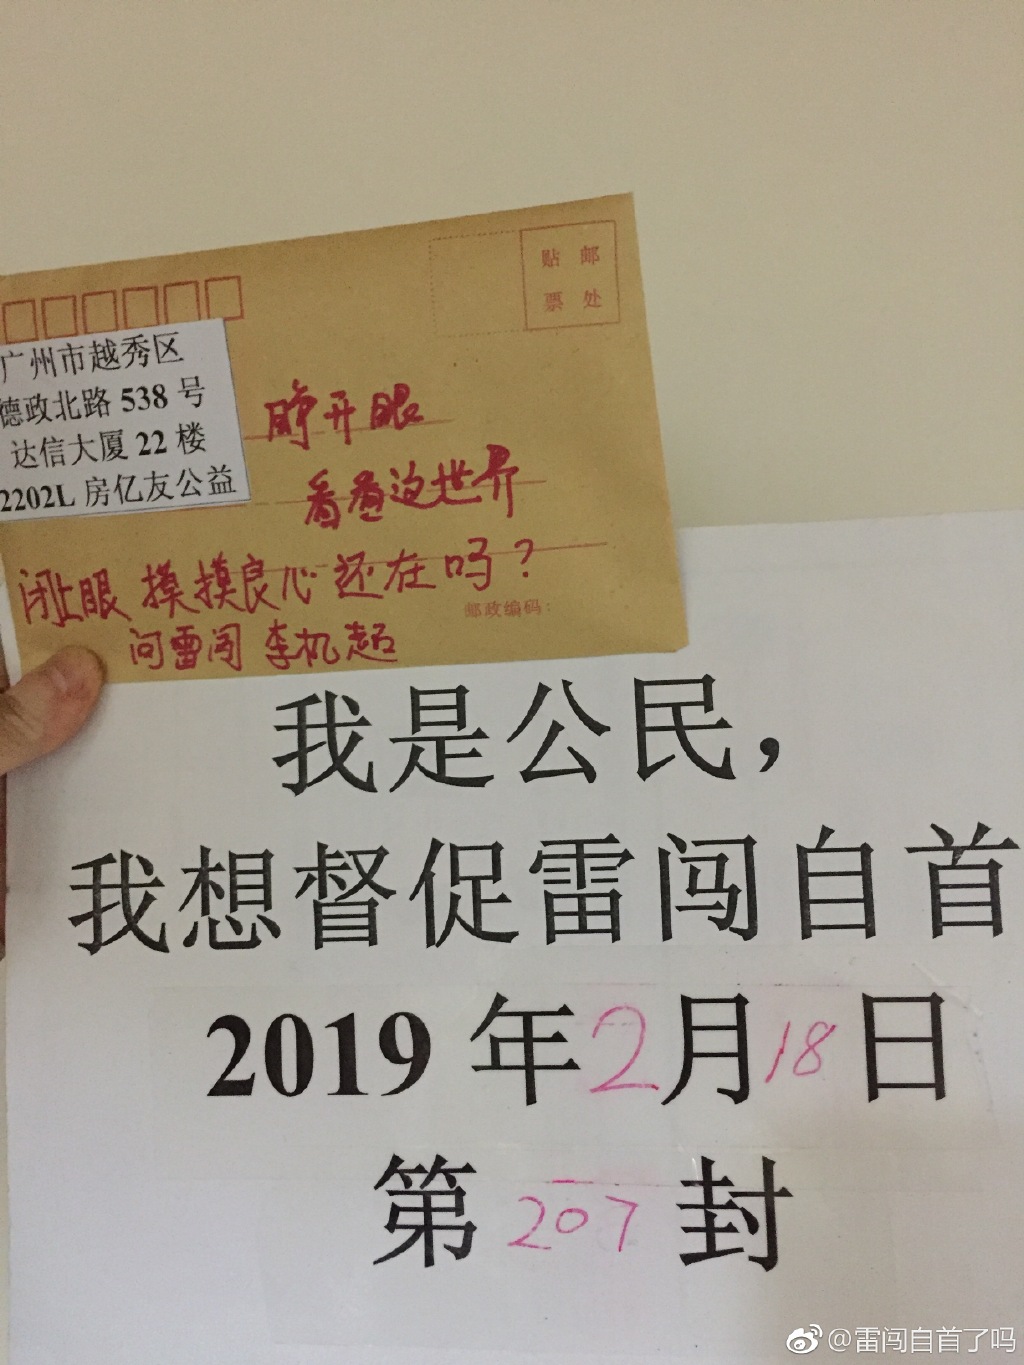 贴 邮
票 处
广州市越秀区
德政北路 538 号
达信大厦 22 楼
2202L 房亿友公益
睁开眼
看看这世界
闭上眼 摸摸良心还在吗？
邮政编码：
问雷闯 李机超
我是公民，
我想督促雷闯自首
2019 年 2 月 18 日
第 207 封
@雷闯自首了吗